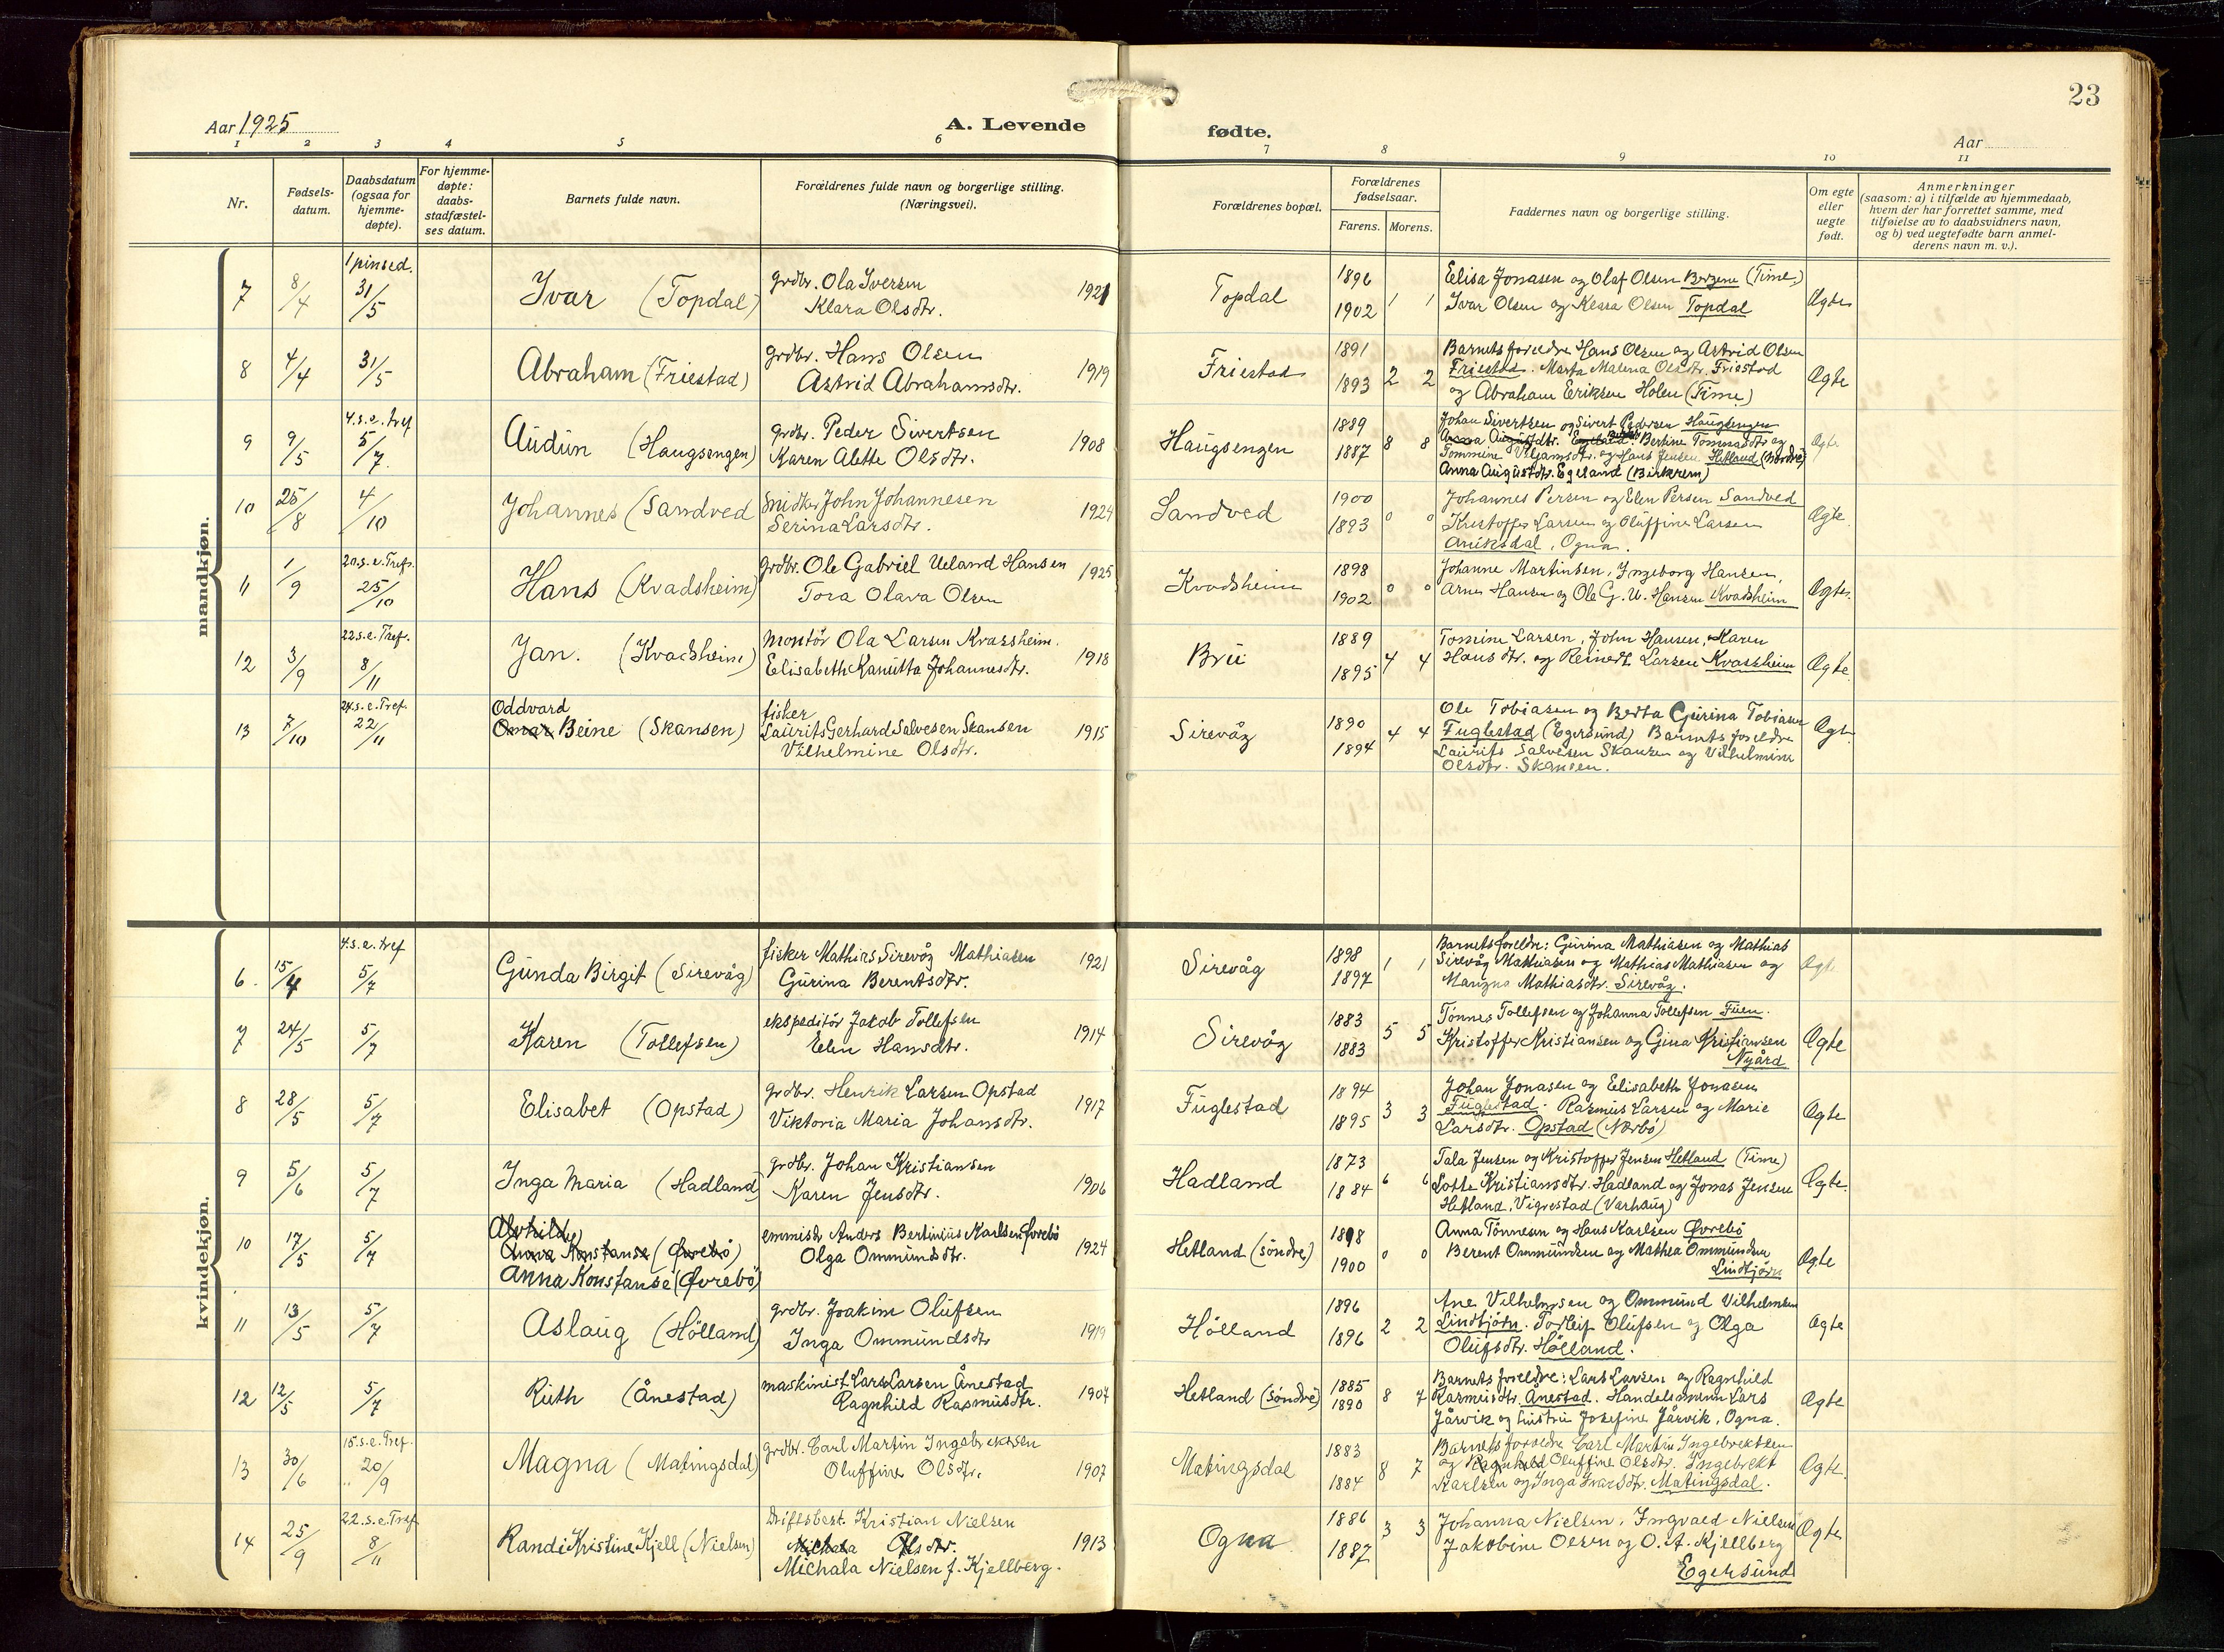 23
Aar 1925
A. Levende
fødte.
Aar
1 2 3 4 5 6 7 8 9 10 11
Nr.
Fødsels-
datum.
Daabsdatum
(ogsaa for
hjemme-
døpte).
For hjemme-
døpte:
daabs-
stadfæstel-
ses datum.
Barnets fulde navn.
Forældrenes fulde navn og borgerlige stilling.
(Næringsvei).
Forældrenes bopæl.
Forældrenes
fødselsaar.
Farens. Morens.
Faddernes navn og borgerlige stilling.
Om egte
eller
uegte
født.
Anmerkninger
(saasom: a) i tilfælde av hjemmedaab,
hvem der har forrettet samme, med
tilføielse av to daabsvidners navn,
og b) ved uegtefødte barn anmel-
derens navn m. v.).
mandkjøn.
1 pinsed.
7 8/4 31/5 Ivar (Topdal) grdbr. Ola Iversen
Klara Olsdtr. 1921
Topdal 1896 1902 1 1
Elisa Jonasen og Olaf Olsen (Time)
Ivar Olsen og Klara Olsen Topdal
Ægte
8 4/4 31/5 Abraham (Friestad) grdbr. Hans Olsen
Astrid Abrahamsdtr. 1919
Friestad 1891 1893 2 2
Barnets foreldre Hans Olsen og Astrid Olsen
Friestad. Marta Malena Olsdtr. Friestad
og Abraham Eriksen Holen (Time)
Ægte
4.s.e.tref
9 9/5 5/7 Audun (Haugsengen) grdbr. Peder Sivertsen
Karen Alette Olsdtr. 1908
Haugsengen 1889 1887 8 8
Johan Sivertsen og Sivert Pedersen Haugsengen
Anna Augustdtr. Egeland. Bertine Tommasdtr og
Tommine Viljamsdtr. og Hans Jensen Hetland (Nordre)
Anna Augustdtr. Egeland (Birkrem)
Ægte
10 25/8 4/10 Johannes (Sandved John Johannesen
Serina Larsdtr. 1924
Sandved 1900 1893 0 0
Johannes Persen og Elen Persen Sandved
Kristoffer Larsen og Oluffine Larsen
Aniksdal, Ogna.
Ægte
20.s.e.Tref.
11 1/9 25/10 Hans (Kvadsheim) grdbr. Ole Gabriel Ueland Hansen
Tora Olava Olsen 1925
Kvadsheim 1898 1902 0 0
Johanne Martinsen, Ingeborg Hansen,
Arne Hansen og Ole G. U. Hansen Kvadsheim
Ægte
22.s.e.Tref.
12 3/9 8/11 Jan. (Kvadsheim) montör Ola Larsen Kvassheim.
Elisabeth Kanutta Johannesdtr. 1918
Bru 1889 1895 4 4
Tomine Larsen, John Hansen, Karen
Hansdtr. og Reinert Larsen Kvassheim
Ægte
24.s.e.Tref.
13 7/10 22/11 Oddvard
Omar Beine (Skansen) fisker
Laurits Gerhard Salvesen Skansen
Vilhelmine Olsdtr. 1915
Sirevåg 1890 1894 4 4
Ole Tobiasen og Berta Gurina Tobiasen
Fuglestad (Egersund) Barnets foreldre
Laurits Salvesen Skansen og Vilhelmine
Olsdtr. Skansen.
Ægte
kvindekjøn.
4.s.e.tref
6 15/4 5/7 Gunda Birgit (Sirevåg) fisker Mathias Sirevåg Mathiasen
Gurina Berentsdtr. 1921
Sirevåg 1898 1897 1 1
Barnets foreldre: Gurina Mathiasen og Mathias
Sirevåg Mathiasen og Mathias Mathiasen og
Mathiasdtr. Sirevåg.
Ægte
7 24/5 5/7 Karen (Tollefsen) ekspeditör Jakob Tollefsen
Elen Hansdtr. 1914
Sirevåg 1883 1883 5 5
Tönnes Tollefsen og Johanna Tollefsen Fuen.
Kristoffer Kristiansen og Gina Kristiansen
Nyård
Ægte
8 28/5 5/7 Elisabet (Opstad) grdbr. Henrik Larsen Opstad
Viktoria Maria Johansdtr. 1917
Fuglestad 1894 1895 3 3
Johan Jonasen og Elisabeth Jonasen
Fuglestad. Rasmus Larsen og Marie
Larsdtr. Opstad (Nærbö)
Ægte
9 5/6 5/7 Inga Maria (Hadland) grdbr. Johan Kristiansen
Karen Jensdtr. 1906
Hadland 1873 1884 6 6
Tala Jensen og Kristoffer Jensen Hetland (Time)
Lotte Kristiansdtr. Hadland og Jonas Jensen
Hetland, Vigrestad (Varhaug)
Ægte.
10 17/5 5/7 Alvhilde
Anna Konstanse (Øvrebö)
Anna Konstanse (Øvrebö) Anders Bertinius Karlsen Øvrebö
Olga Ommundsdtr. 1924
Hetland (söndre) 1898 1900 0 0
Anna Tönnesen og Hans Karlsen Øvrebö
Berent Ommundsen og Mathea Ommundsen
Lindtjörn
Ægte
11 13/5 5/7 Aslaug (Hölland) grdbr. Joakim Olufsen
Inga Ommundsdtr 1919
Hölland 1896 1896 2 2
Ane Vilhelmsen og Ommund Vilhelmsen
Lindtjörn. Torleif Olufsen og Olga
Olufsdtr. Hölland.
Ægte
12 12/5 5/7 Ruth (Ånestad) maskinist Lars Larsen Ånestad
Ragnhild Rasmusdtr. 1907
Hetland (söndre) 1885 1890 8 7
Barnets foreldre: Lars Larsen og Ragnhild
Rasmusdtr. Ånestad. Handelsmann Lars
Jårvik og hustru Josefine Jårvik, Ogna.
Ægte
15.s.e.Tref.
13 30/6 20/9 Magna (Matingsdal) grdbr. Carl Martin Ingebrektsen
Oluffine Olsdtr. 1907
Matingsdal 1883 1884 8 7
Barnets foreldre Carl Martin Ingebrektsen
og Ragnhild Oluffine Olsdtr. Ingebrekt
Karlsen og Inga Ivarsdtr. Matingsdal.
Ægte.
22.s.e.Tref
14 25/9 8/11 Randi Kristine Kjell (Nielsen) Driftsbest. Kristian Nielsen
Michala Olsdtr.
Michala Nielsen f. Kjellberg. 1913
Ogna 1886 1887 3 3
Johanna Nielsen, Ingvald Nielsen
Jakobine Olsen og O. A. Kjellberg
Egersund
Ægte